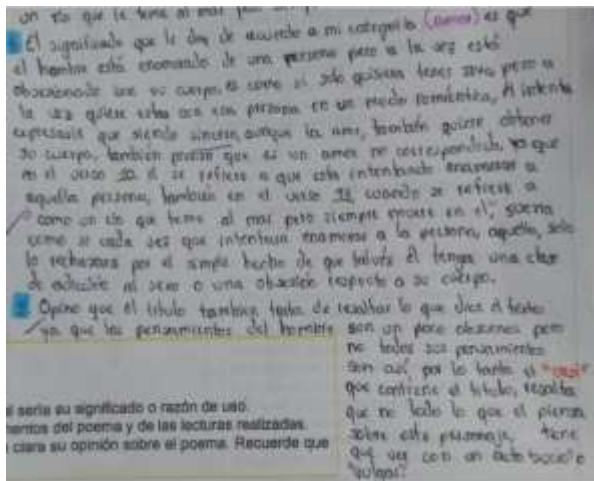 un río que le teme al mar pero
El significado que le doy de acuerdo a mi categoría (amor) es que
el hombre está enamorado de una persona pero a la vez está
obsesionado con su cuerpo, es como si solo quisiera tener sexo pero a
la vez quiere estar con esa persona en un modo romántico, él intenta
expresarle que siendo sincero, aunque la ame, también quiere obtener
su cuerpo, también pienso que es un amor no correspondido, ya que
en el verso 10 él se refiere a que está intentando enamorar a
aquella persona, también en el verso cuando se refiere a
"como un río que teme al mar pero siempre muere en él", suena
como si cada vez que intentara enamorar a la persona, aquella, solo
lo rechazara por el simple hecho de que talvés él tenga una clase
de adicción al sexo o una obsesión respecto a su cuerpo.
Opino que el título también trata de resaltar lo que dice el texto
ya que los pensamientos del hombre son un poco obscenos pero
no todos sus pensamientos
son así por lo tanto el "casi"
que contiene el título, resalta
que no todo lo que él piensa
sobre este personaje, tiene
que ver con un acto sexual o
"vulgar".
l sería su significado o razón de uso.
mentos del poema y de las lecturas realizadas.
clara su opinión sobre el poema. Recuerde que